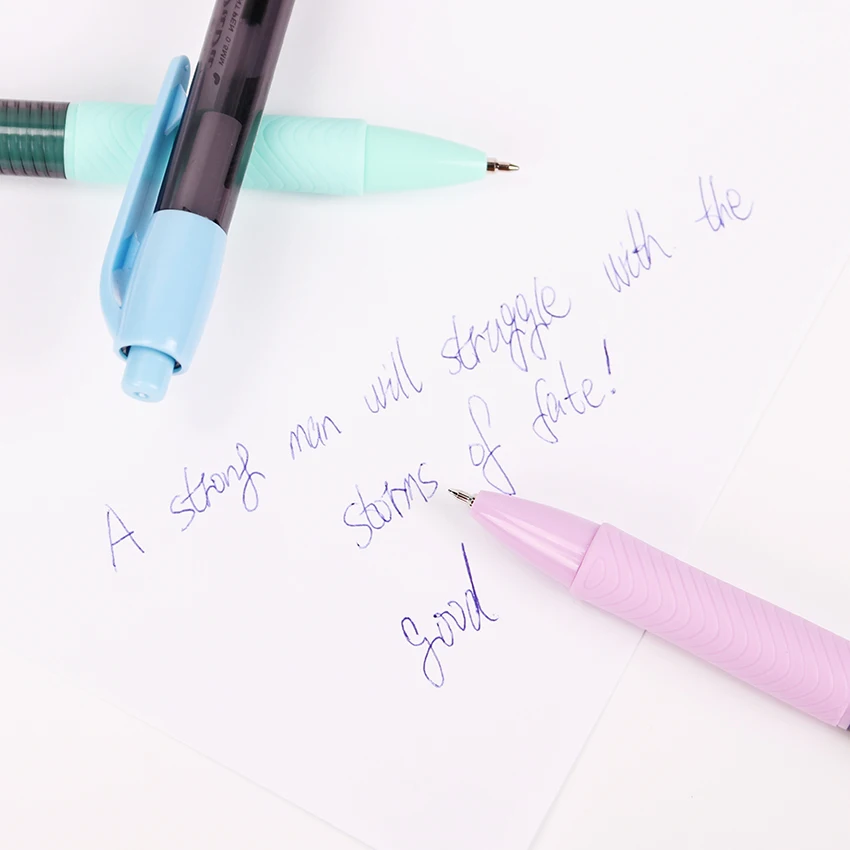 PEN 0.5MM
A strong man will struggle with the
storms of fate!
Good